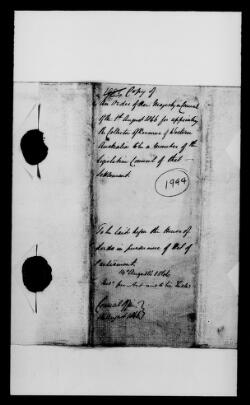 Copy of
An Order of Her Majesty in Council
of the 1st August 1846 for appointing
the Collector of Revenue of Western
Australia to be a member of the
Legislative Council of that
Settlement
1944
To be laid before the House of
Lords in pursuance of Act of
Parliament
August 1846
Council
August 1846